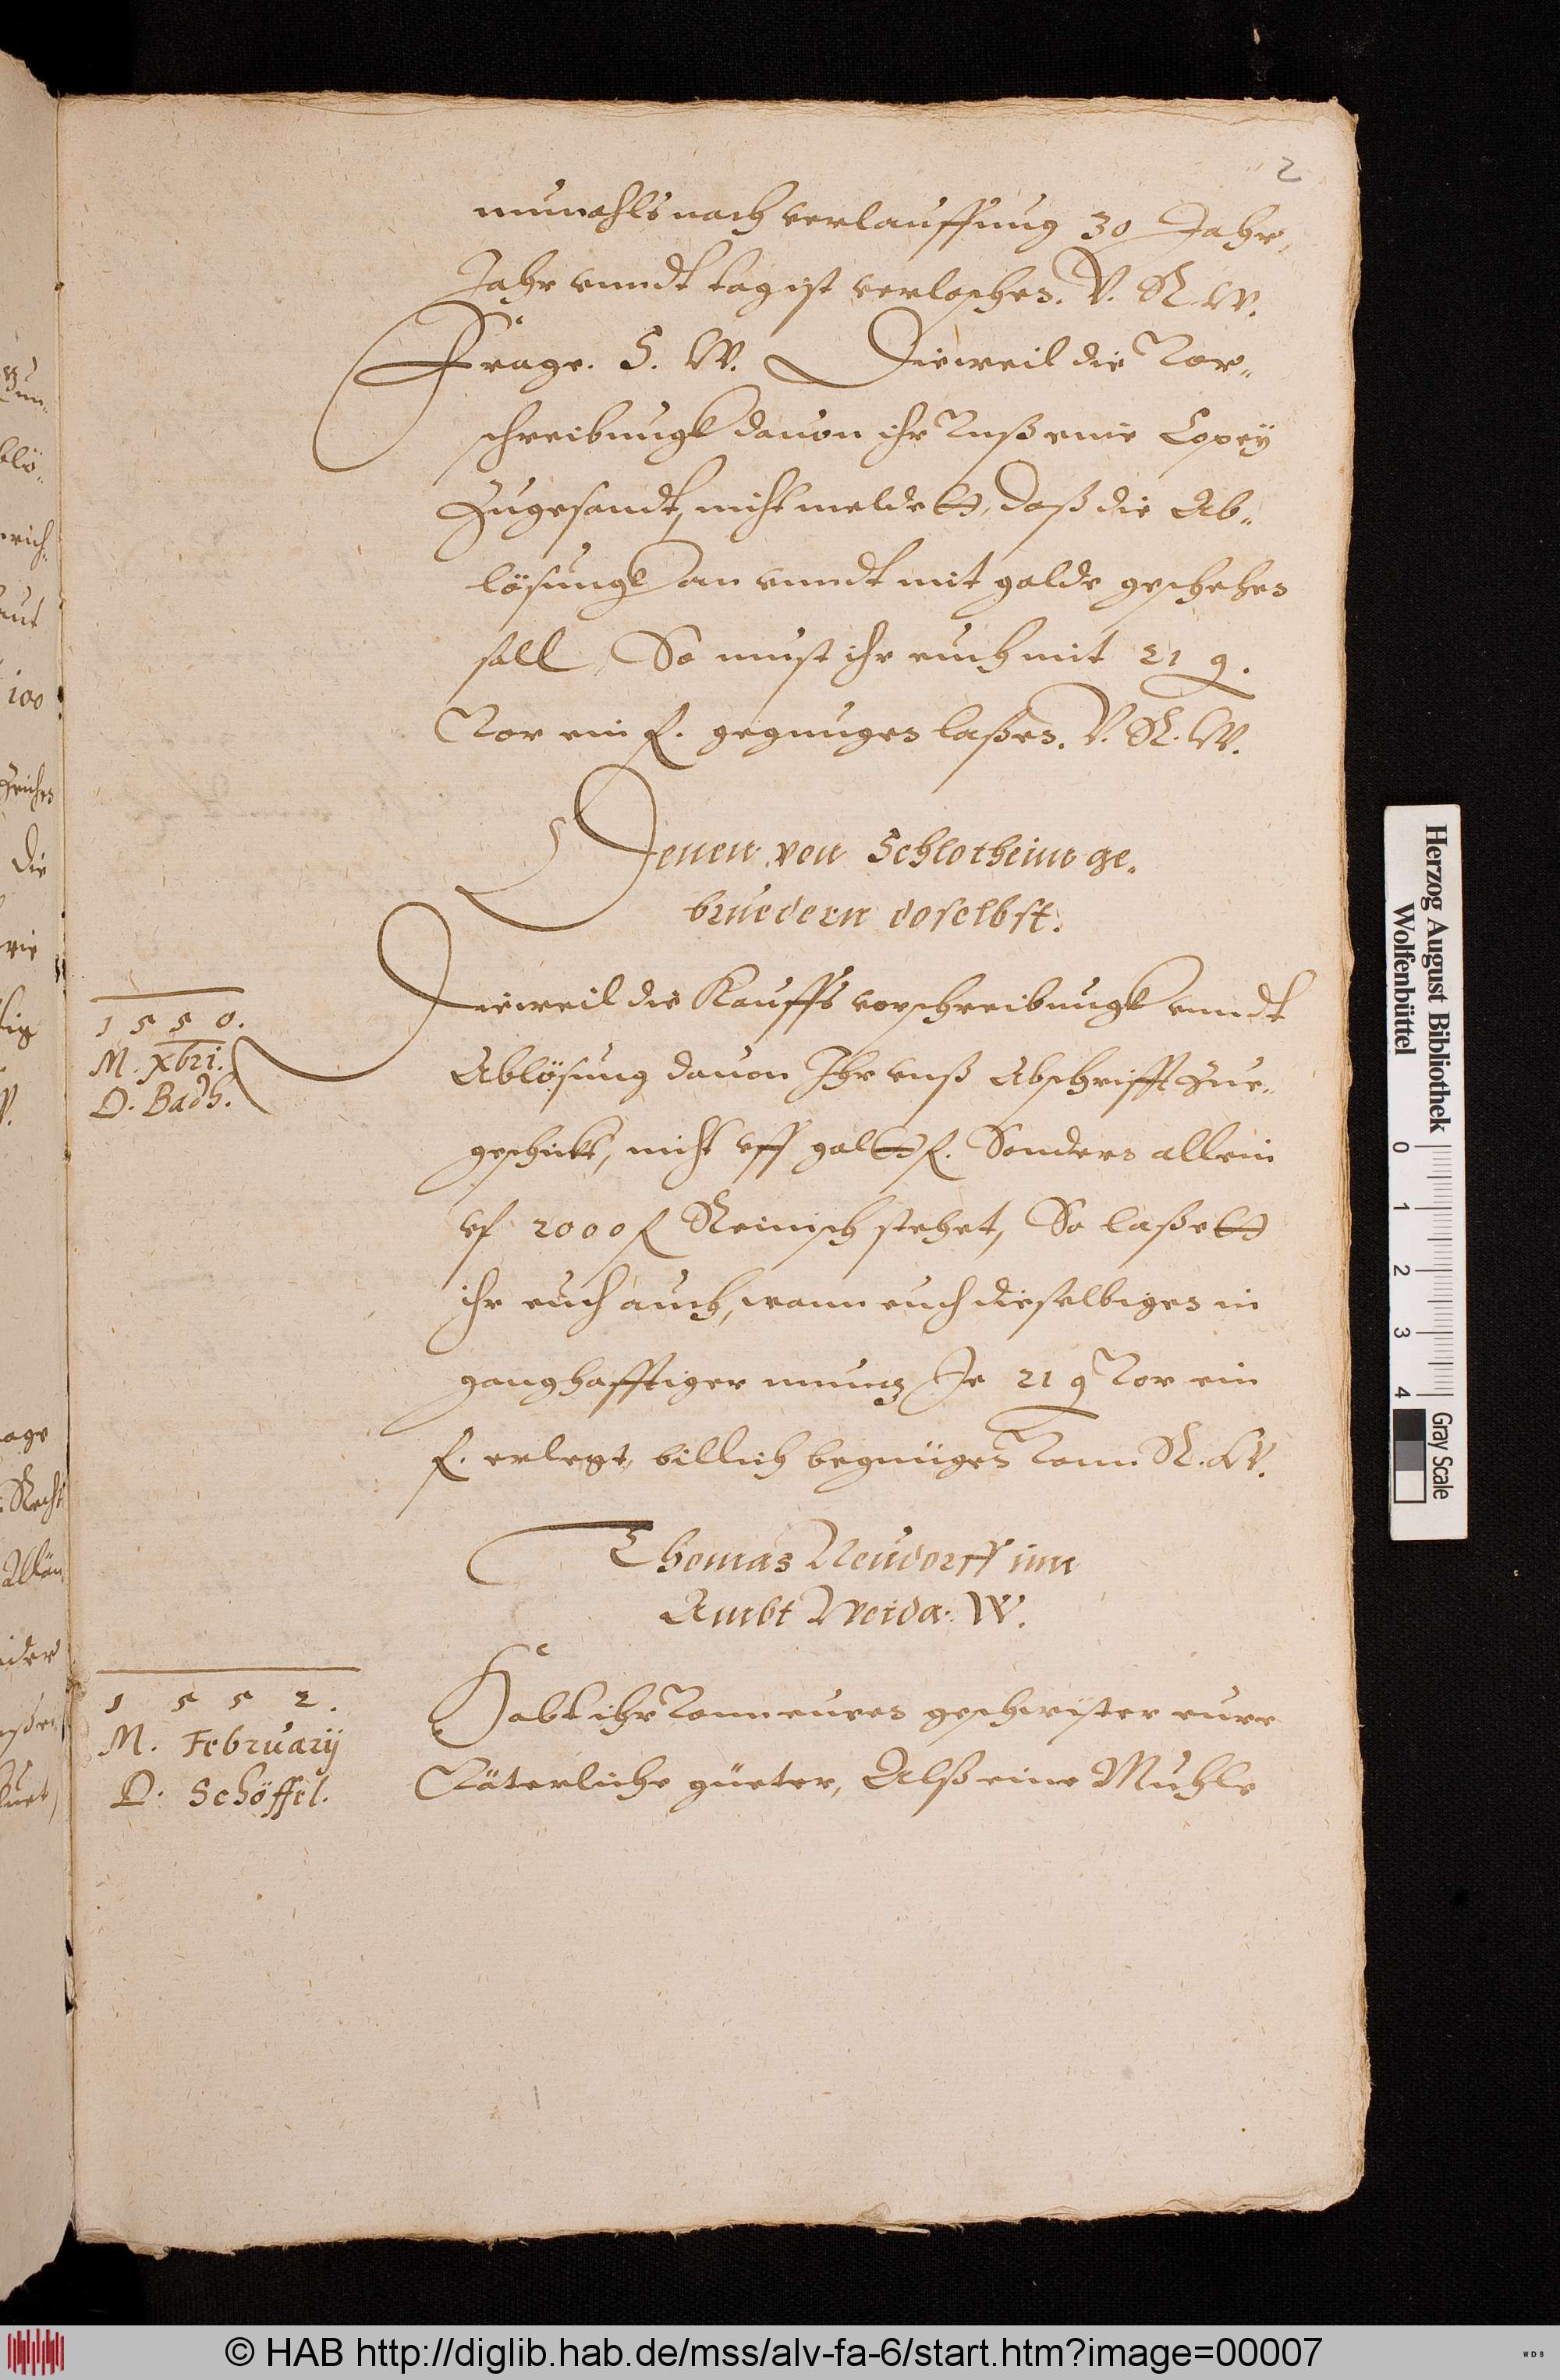 2
nunmahls nach verlauffung 30 Jahr,
Jahr vnndt tag ist verloschen. V. R. W.
Frage. 5. W. Dieweil die Vor„
schreibungk dauon ihr Vnß eine Copey
Zugesandt, nicht meldett, daß die Ab„
lösungk an vnndt mit golde geschehen
soll, So must ihr euch mit 21 g.
Vor ein f. gegnugen laßen. V. R. W.
Denen von Schlotheim ge„
bruedern doselbst.
1550.
M. Xbri.
D. Badh.
Dieweil die Kauffs vorschreibungk vnndt
Ablösung dauon Ihr vnß Abschrifft zue„
geschickt, nicht vff goltt f. Sondern allein
vf 2000 f Reinisch stehet, So laßett
ihr euch auch, wann euch dieselbigen in
ganghafftiger muntz Je 21 g Vor ein
f. erlegt, billich begnügen Vonn R. W.
Thomas Neudorff inn
Ambt Weida. W.
1552.
M. February
D. Schöffel.
Habt ihr Vonn euren geschwister eure
Väterliche güeter, Alß eine Muhle
Herzog August Bibliothek
Wolfenbüttel
0 1 2 3 4
Gray Scale
© HAB http://diglib.hab.de/mss/alv-fa-6/start.htm?image=00007
WDB